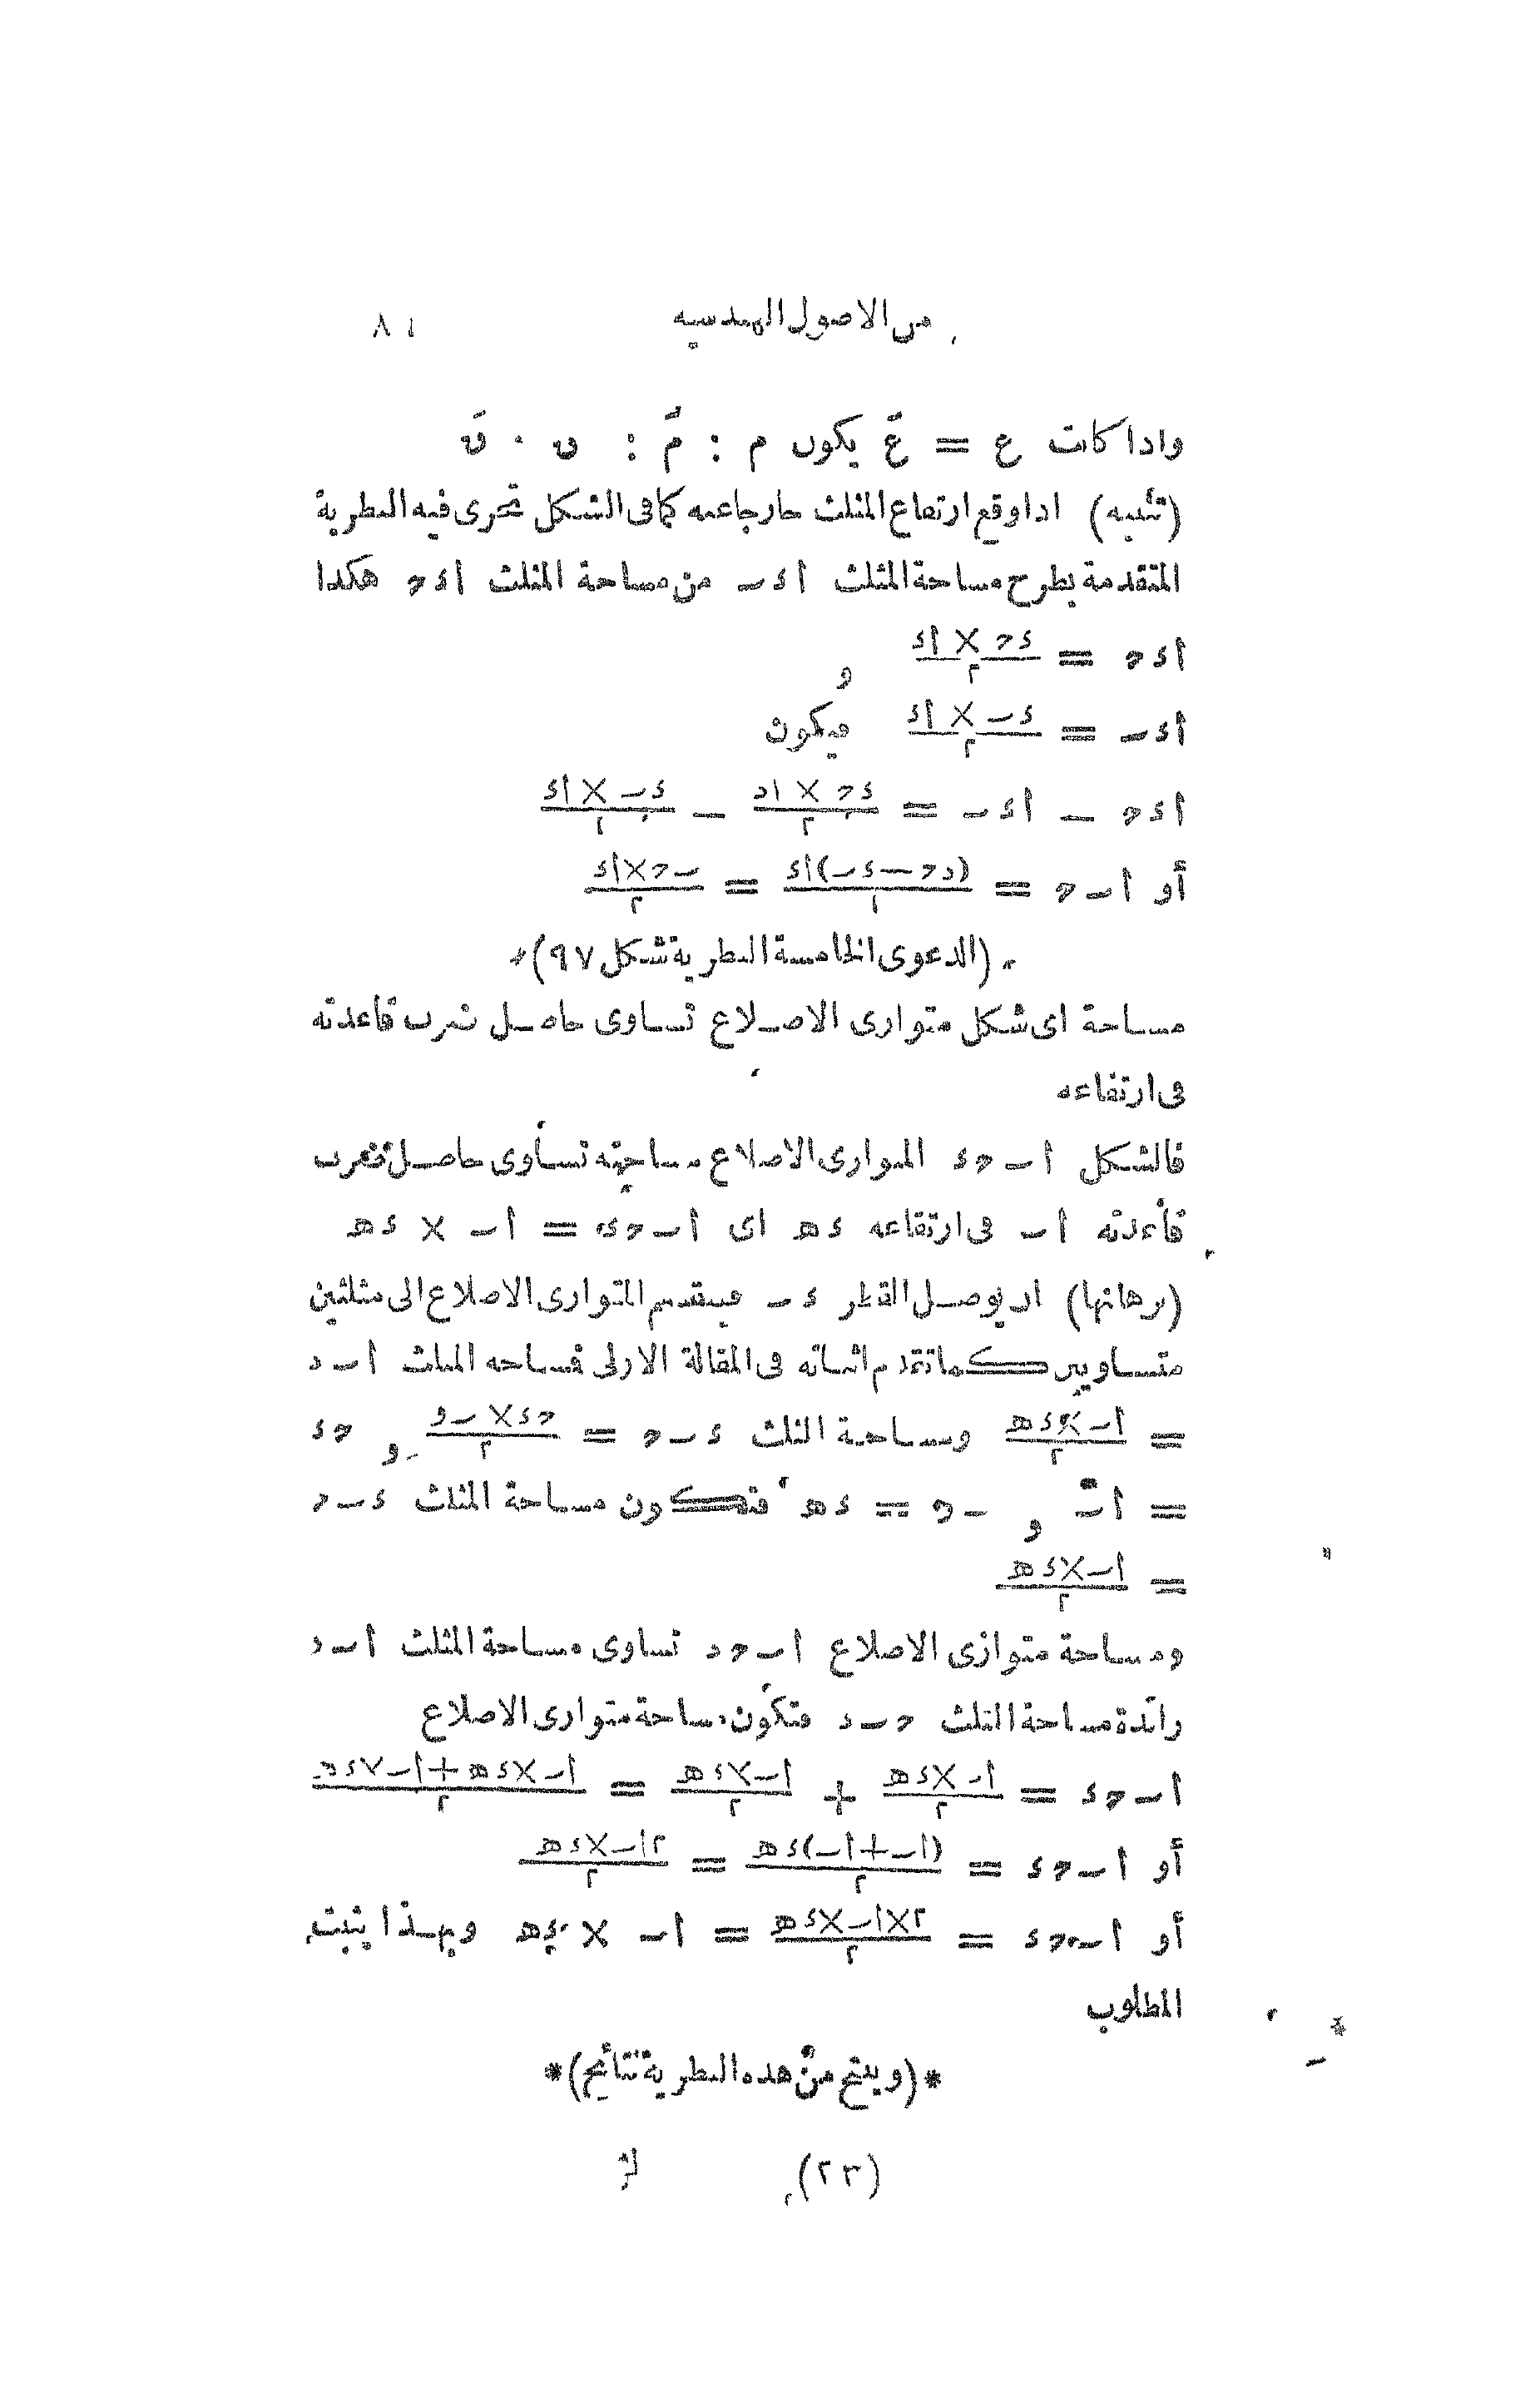 من الاصول الهندسيه ٨١
واذا كانت ع = عَ يكون م : مَ : ن : نَ
(تنبيه) اذا وقع ارتفاع المثلث خارجا عنه كما فى الشكل تجرى فيه النظرية
المتقدمة بطرح مساحة المثلث أ د ب من مساحة المثلث أ د ح هكذا
أ د ح = د ح × أ د / ٢ و
أ د ب = د ب × أ د / ٢ فيكون
أ د ح − أ د ب = د ح × ا د / ٢ − د ب × أ د / ٢
أو أ ب ح = (د ح − د ب) أ د / ٢ = ب ح × أ د / ٢
(الدعوى الخامسة النظرية شكل ٩٧)
مساحة اى شكل متوازى الاضلاع تساوى حاصل ضرب قاعدته
فى ارتفاعه
فالشكل أ ب ح د المتوازى الاضلاع مساحته تساوى حاصل ضرب
قاعدته أ ب فى ارتفاعه د ه اى أ ب ح د = أ ب × د ه
(برهانها) ان يوصل القطر د ب فينقسم المتوازى الاضلاع الى مثلثين
متساويين كما تقدم اثباته فى المقالة الاولى فمساحه المثلث أ ب د
= أ ب × د ه / ٢ ومساحة المثلث د ب ح = ح د × ب و / ٢ و ح د
= أ ب و ب و = د ه فتكون مساحة المثلث د ب ح
= أ ب × د ه / ٢
ومساحة متوازى الاضلاع أ ب ح د تساوى مساحة المثلث أ ب د
زائدة مساحة المثلث ح ب د فتكون مساحة متوازى الاضلاع
أ ب ح د = أ ب × د ه / ٢ + أ ب × د ه / ٢ = أ ب × د ه + أ ب × د ه / ٢
أو أ ب ح د = (أ ب + أ ب) د ه / ٢ = ٢ أ ب × د ه / ٢
أو أ ب ح د = ٢ × أ ب × د ه / ٢ = أ ب × د ه وبهذا يثبت
المطلوب
*(وينتج من هذه النظرية نتائج)*
(٢٣)